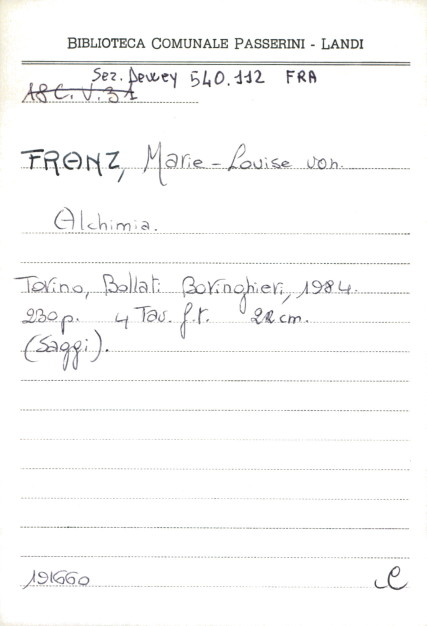 BIBLIOTECA COMUNALE PASSERINI - LANDI
Sez. Dewey 540.112 FRA
A8 C. V. 31
FRANZ, Marie-Louise von.
Alchimia.
Torino, Bollati Boringhieri, 1984.
230 p. 4 Tav. f.t. 22 cm.
(Saggi).
191660
C